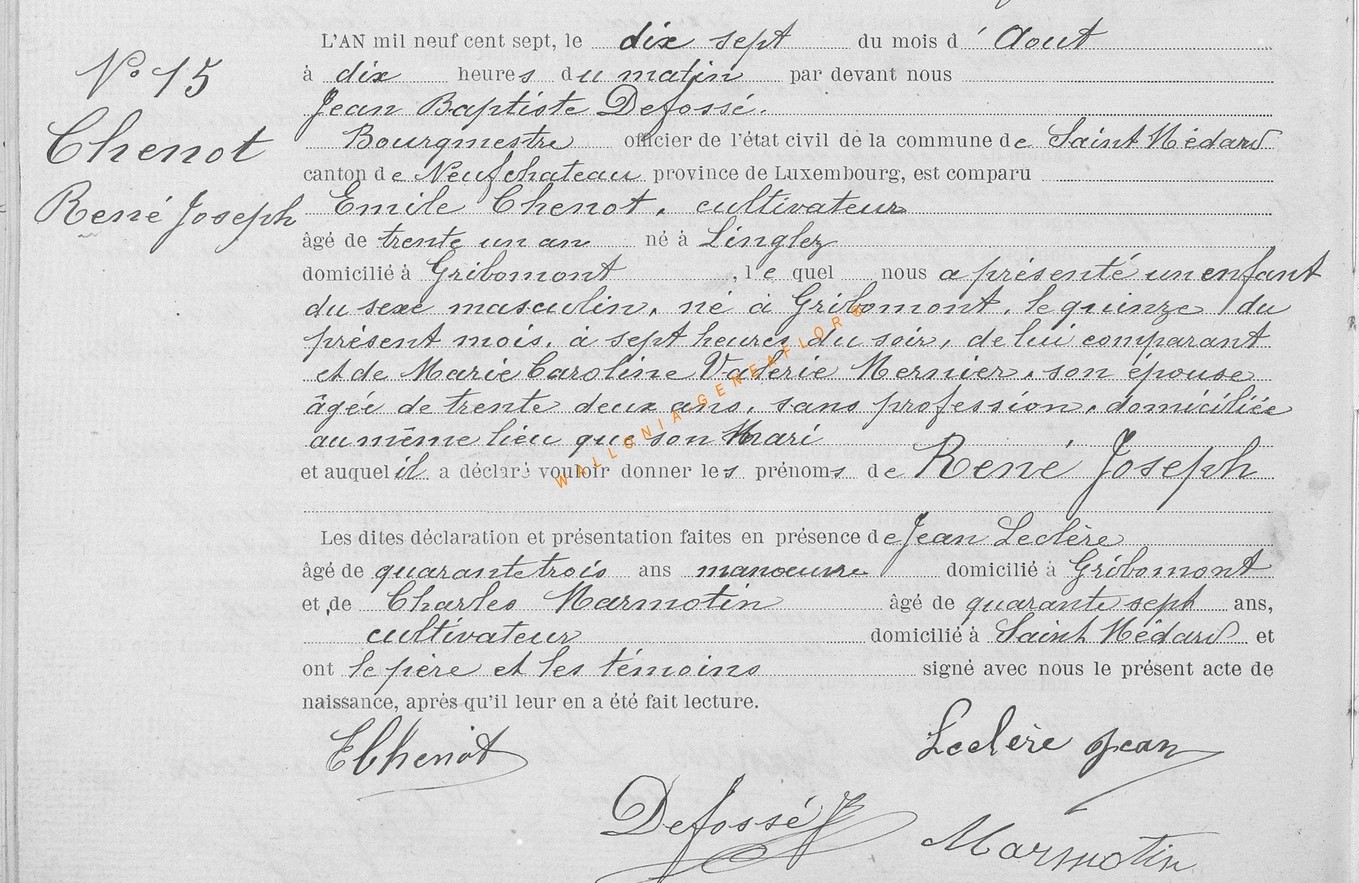 N° 15
Chenot
René Joseph
L'AN mil neuf cent sept, le dix sept du mois d'Aout
à dix heures du matin par devant nous
Jean Baptiste Defossé.
Bourgmestre officier de l'état civil de la commune de Saint Médard
canton de Neufchateau province de Luxembourg, est comparu
Emile Chenot, cultivateur
âgé de trente un an né à Linglez
domicilié à Gribomont, lequel nous a présenté un enfant
du sexe masculin, né à Gribomont, le quinze du
présent mois, à sept heures du soir, de lui comparant
et de Marie Caroline Valérie Mernier, son épouse
âgée de trente deux ans, sans profession, domiciliée
au même lieu que son mari
et auquel il a déclaré vouloir donner les prénoms de René Joseph
Les dites déclaration et présentation faites en présence de Jean Leclère
âgé de quarante trois ans manœuvre domicilié à Gribomont
et de Charles Marmotin âgé de quarante sept ans,
cultivateur domicilié à Saint Médard et
ont le pere et les témoins signé avec nous le présent acte de
naissance, après qu'il leur en a été fait lecture.
EChenot
Leclère Jean
Defossé JB
Marmotin
WALLONIA GENEAFLORE